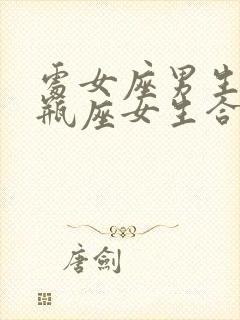 處女座男生
瓶座女生合
唐劍